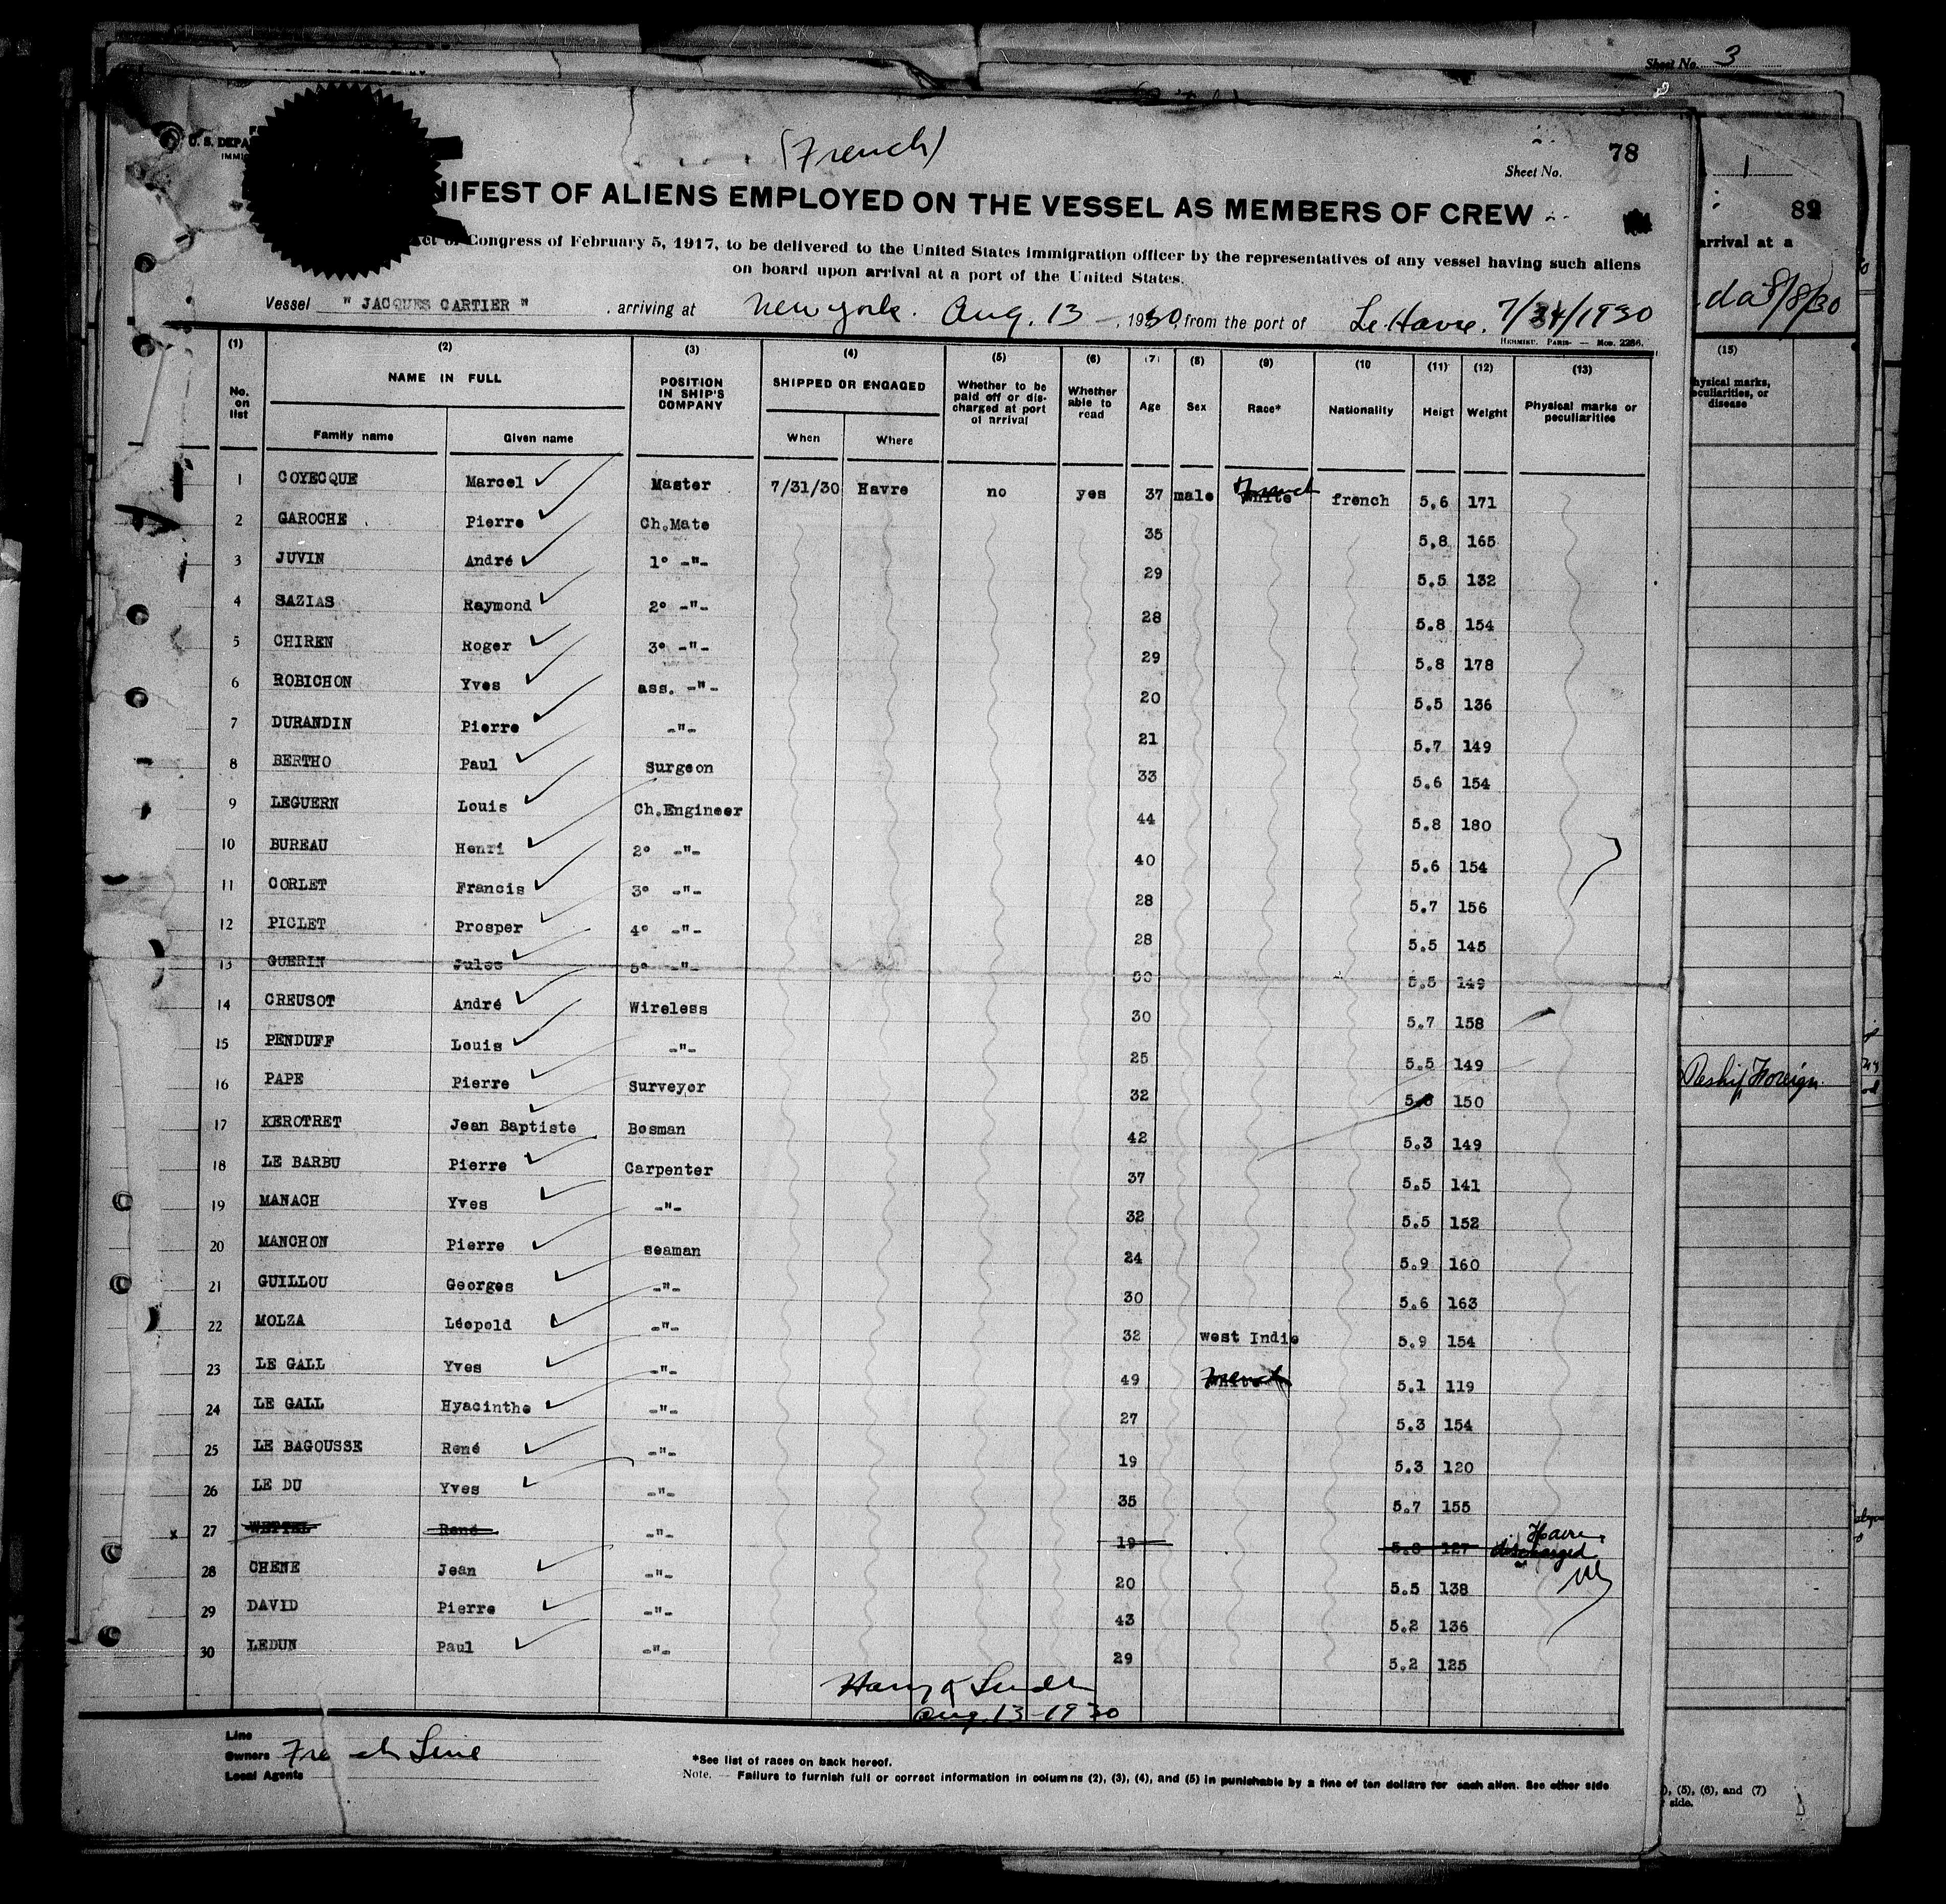 Sheet No. 3
(French)
78
Sheet No.
U. S. DEPA
IMMI
NIFEST OF ALIENS EMPLOYED ON THE VESSEL AS MEMBERS OF CREW
Act of Congress of February 5, 1917, to be delivered to the United States immigration officer by the representatives of any vessel having such aliens
on board upon arrival at a port of the United States.
Vessel " JACQUES CARTIER " , arriving at New York. Aug. 13 , 1930, from the port of Le Havre. 7/31/1930
HERMIEU. PARIS- — Mod. 2286.
(1) (2) (3) (4) (5) (6) (7) (8) (9) (10 (11) (12) (13)
No. on list NAME IN FULL POSITION IN SHIP'S COMPANY SHIPPED OR ENGAGED Whether to be paid off or dis- charged at port of arrival Whether able to read Age Sex Race* Nationality Heigt Weight Physical marks or peculiarities
Family name Given name When Where
1 COYECQUE Marcel Master 7/31/30 Havre no yes 37 male French french 5.6 171
2 GAROCHE Pierre Ch.Mate 35 5.8 165
3 JUVIN André 1° -"- 29 5.5 132
4 SAZIAS Raymond 2° -"- 28 5.8 154
5 CHIREN Roger 3° -"- 29 5.8 178
6 ROBICHON Yves ass. -"- 20 5.5 136
7 DURANDIN Pierre -"- 21 5.7 149
8 BERTHO Paul Surgeon 33 5.6 154
9 LEGUERN Louis Ch.Engineer 44 5.8 180
10 BUREAU Henri 2° -"- 40 5.6 154
11 CORLET Francis 3° -"- 28 5.7 156
12 PICLET Prosper 4° -"- 28 5.5 145
13 GUERIN Jules 5° -"- 5.5 149
14 CREUSOT André Wireless 30 5.7 158
15 PENDUFF Louis -"- 25 5.5 149
16 PAPE Pierre Surveyor 32 150
17 KEROTRET Jean Baptiste Bosman 42 5.3 149
18 LE BARBU Pierre Carpenter 37 5.5 141
19 MANACH Yves -"- 32 5.5 152
20 MANCHON Pierre seaman 24 5.9 160
21 GUILLOU Georges -"- 30 5.6 163
22 MOLZA Léopold -"- 32 west Indie 5.9 154
23 LE GALL Yves -"- 49 French 5.1 119
24 LE GALL Hyacinthe -"- 27 5.3 154
25 LE BAGOUSSE René -"- 19 5.3 120
26 LE DU Yves -"- 35 5.7 155
x 27 WETTEL René -"- 19 127 Havre discharged
28 CHENE Jean -"- 20 5.5 138
29 DAVID Pierre -"- 43 5.2 136
30 LEDUN Paul -"- 29 5.2 125
Aug. 13-1930
Line
Owners French Line
Local Agents
*See list of races on back hereof.
Note. — Failure to furnish full or correct information in columns (2), (3), (4), and (5) in punishable by a fine of ten dollars for each alien. See other side
1
82
arrival at a
da 8/8/30
(15)
hysical marks, eculiarities, or disease
Reship Foreign
), (5), (6), and (7)
side.